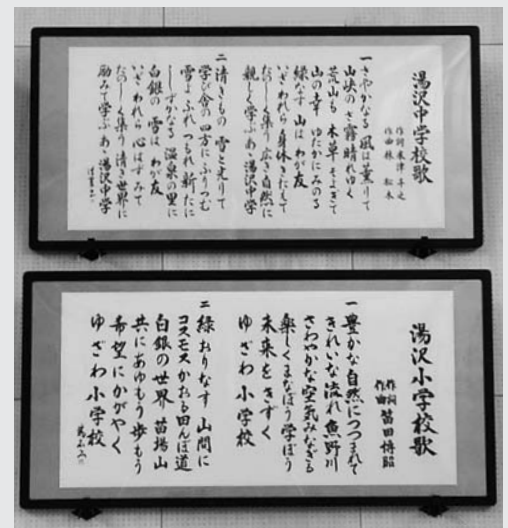 湯沢中学校歌
作詞 米津千之
作曲 林松木
一 さやかなる 風は薫りて
山峡の さ霧晴れゆく
荒山も 木草そよぎて
山の幸 ゆたかにみのる
緑なす 山はわが友
いざわれら 身体きたえて
たのしく集う 広き自然に
親しく学ぶ あゝ湯沢中学
二 清きもの 雪と光りて
学び舎の 四方にふりつむ
雪よふれ つもれ新たに
しずかなる 温泉の里に
白銀の 雪はわが友
いざわれら 心はずみて
たのしく集う 清き世界に
励みて学ぶ あゝ湯沢中学
湯沢小学校歌
作詞
作曲 笛田博昭
一 豊かな自然につつまれて
きれいな流れ 魚野川
さわやかな空気みなぎる
楽しくまなぼう学ぼう
未来をきずく
ゆざわ小学校
二 緑おりなす 山間に
コスモスかおる田んぼ道
白銀の世界 苗場山
共にあゆもう歩もう
希望にかがやく
ゆざわ小学校